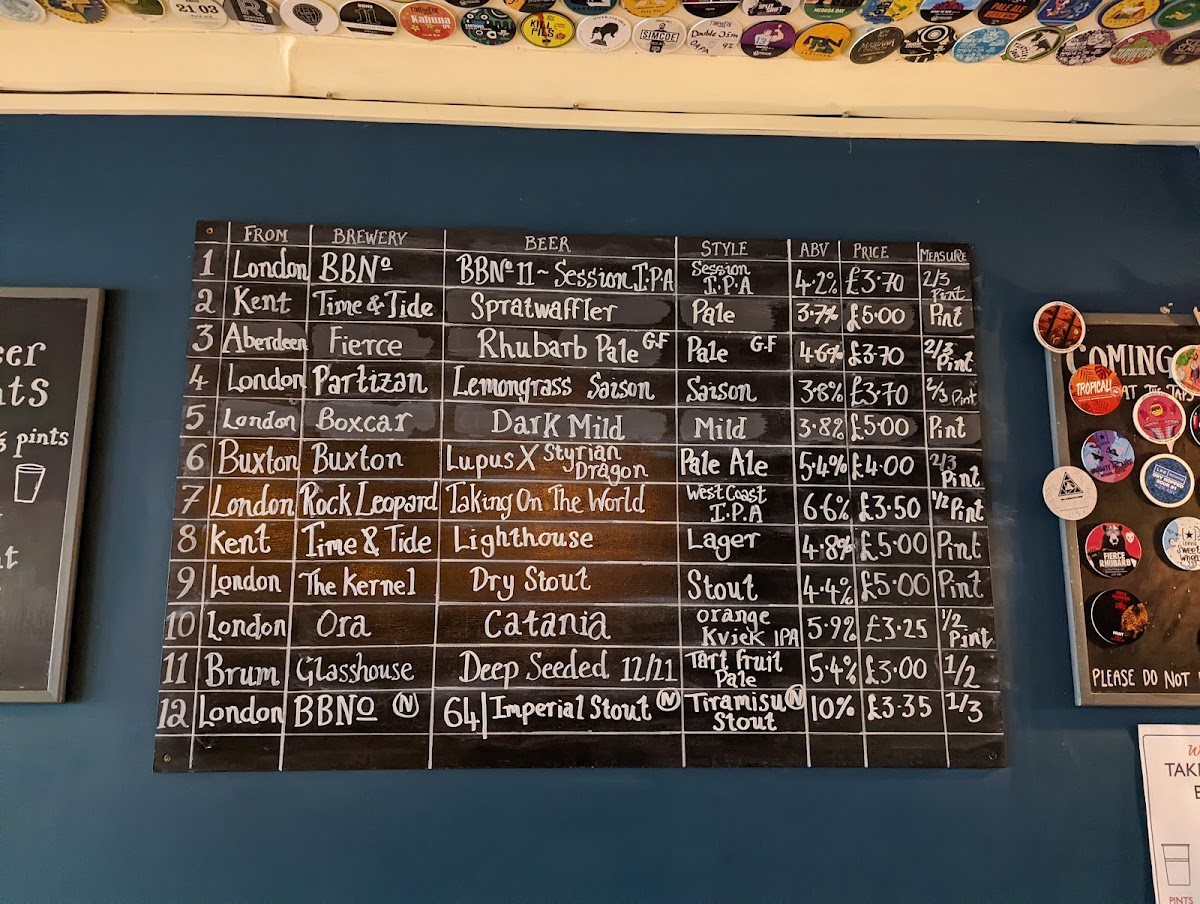 21 03
Kahuna
KILL
PILS
SIMCOE
Double Jim
9%
PALE ALE
FROM BREWERY BEER STYLE ABV PRICE MEASURE
1 London BBNº BBNº 11 ~ Session I.P.A Session I.P.A 4.2% £3.70 2/3 Pint
2 Kent Time & Tide Spratwaffler Pale 3.7% £5.00 Pint
3 Aberdeen Fierce Rhubarb Pale G.F Pale G.F 4.6% £3.70 2/3 Pint
4 London Partizan Lemongrass Saison Saison 3.8% £3.70 2/3 Pint
5 London Boxcar Dark Mild Mild 3.8% £5.00 Pint
6 Buxton Buxton Lupus X Styrian Dragon Pale Ale 5.4% £4.00 2/3 Pint
7 London Rock Leopard Taking On The World West Coast I.P.A 6.6% £3.50 1/2 Pint
8 Kent Time & Tide Lighthouse Lager 4.8% £5.00 Pint
9 London The Kernel Dry Stout Stout 4.4% £5.00 Pint
10 London Ora Catania orange Kviek IPA 5.9% £3.25 1/2 Pint
11 Brum Glasshouse Deep Seeded 12/21 Tart fruit Pale 5.4% £3.00 1/2
12 London BBNº (N) 64| Imperial Stout (N) Tiramisu (N) Stout 10% £3.35 1/3
pints
COMING
AT THE TAPS
TROPICAL
FIERCE
RHUBARB
PLEASE DO NOT
TAK
PINTS